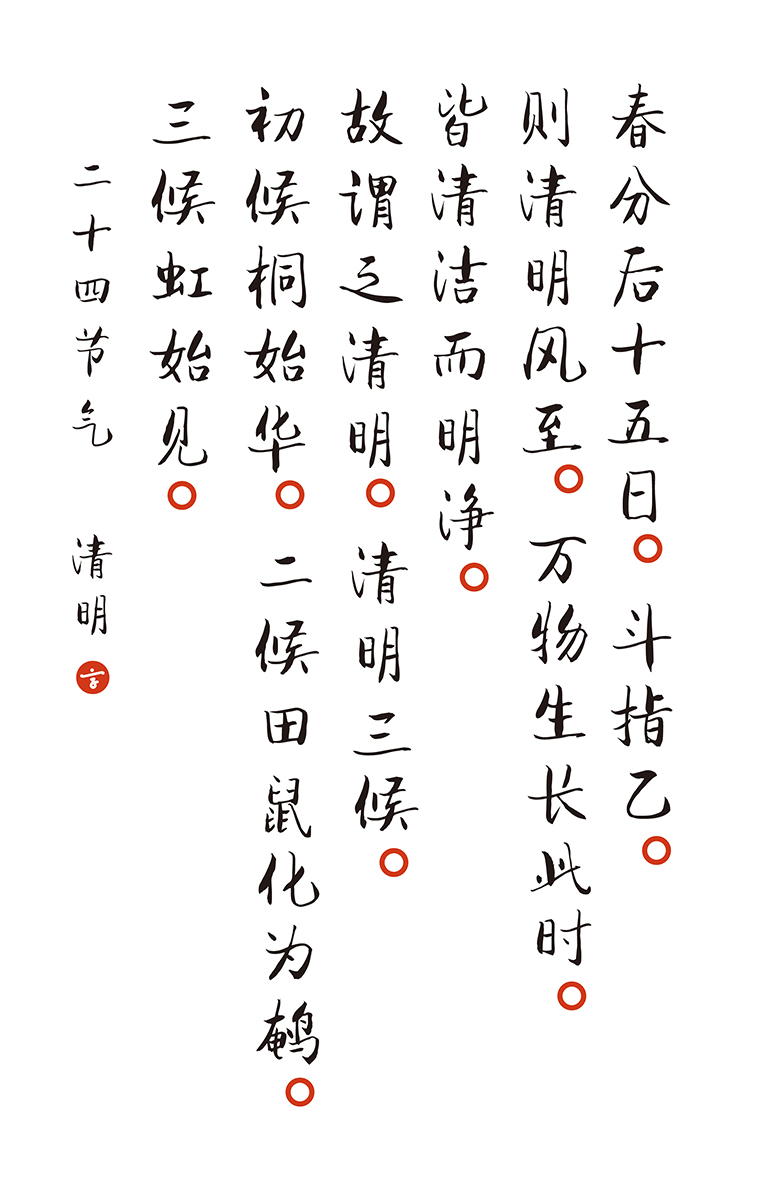 春分后十五日。斗指乙。
则清明风至。万物生长此时。
皆清洁而明净。
故谓之清明。清明三候。
初候桐始华。二候田鼠化为鹌。
三候虹始见。
二十四节气 清明